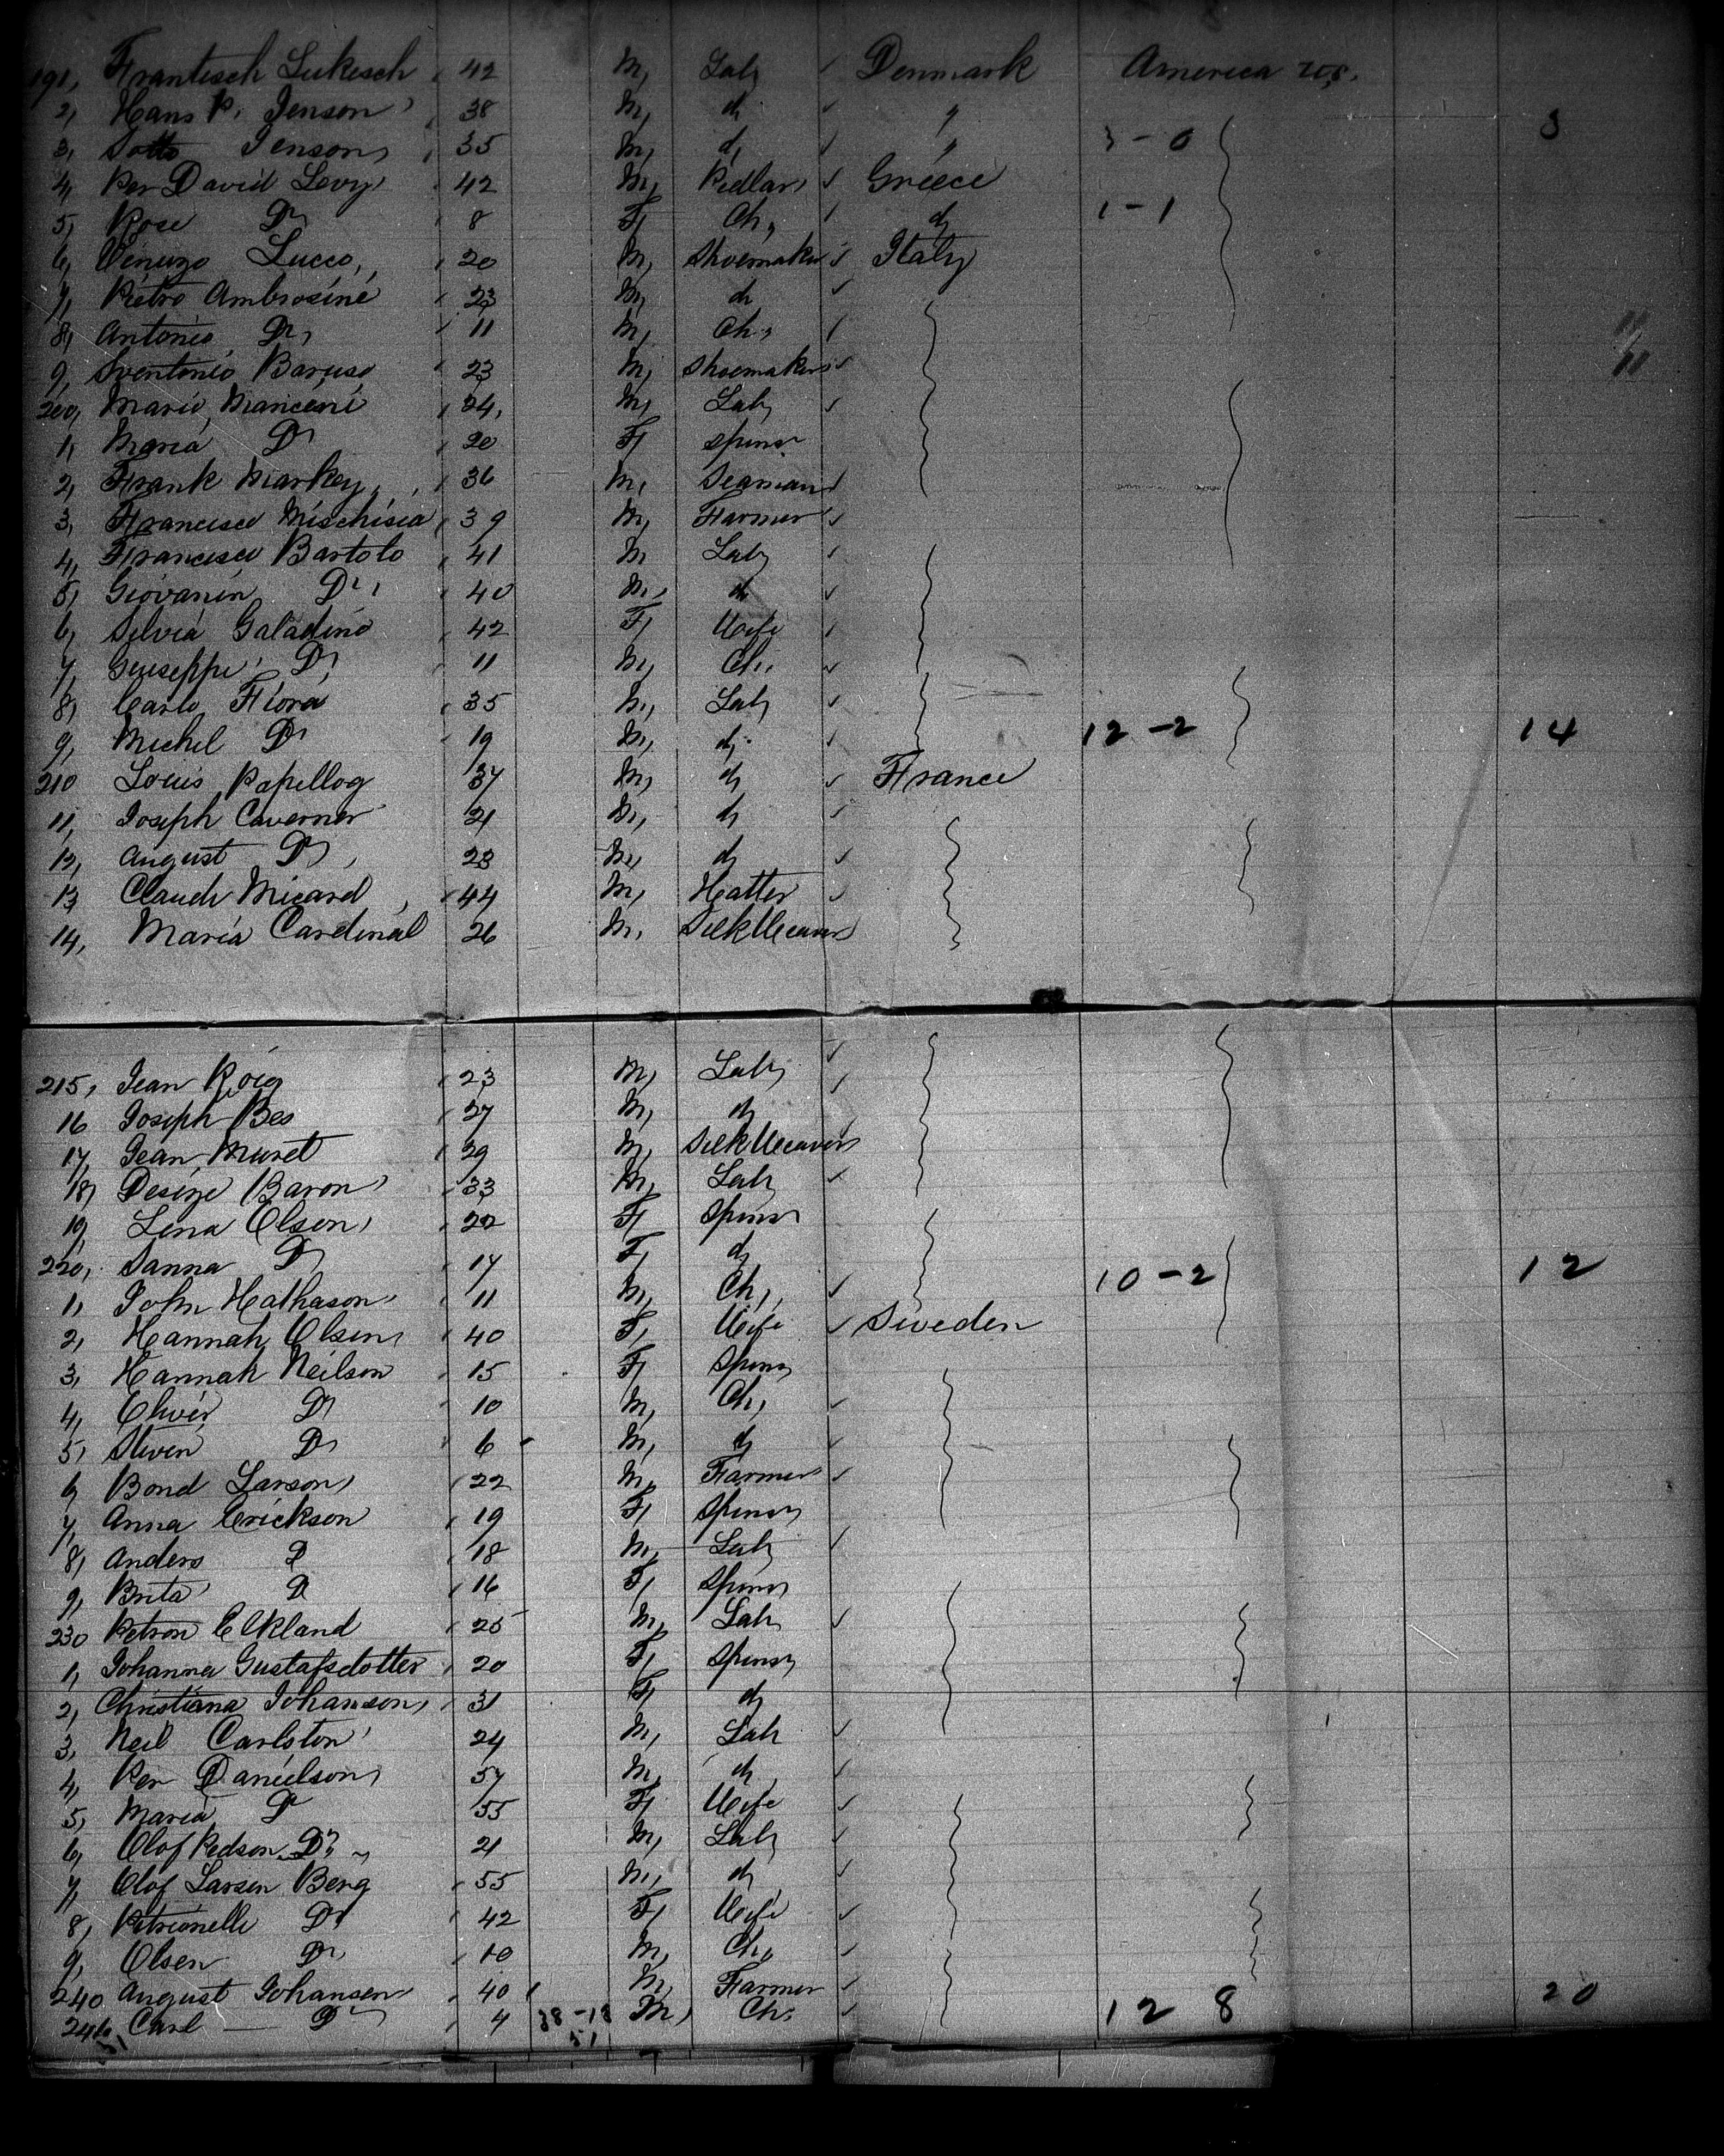 191, Frantisch Lukesch 42 M, Lab, Denmark America
2, Hans P. Jenson 38 M, d, "
3, Jenson, 35 M, d, " 3-0 3
4, Per David Levy 42 M, Pedlar, Greece
5, Rose D, 8 F, Ch, d, 1-1
6, Lucco, 20 M, Shoemaker Italy
7, Pietro Ambrosine 23 M, d,
8, Antonio D, 11 M, Ch,
9, Baruso 23 M, Shoemaker
200, Mario Manceni 24, M, Lab,
1, Maria D, 20 F, Spinsr
2, Frank Markey, 36 M, Seaman
3, Francisco Mischisia 39 M, Farmer
4, Francisco Bartolo 41 M Lab,
5, Giovanin D, 40 M, d,
6, Silvia Galadino 42 F, Wife
7, Guiseppi D, 11 M, Ch,
8, Carlo Fiora 35 M, Lab,
9, Michel D, 19 M, d, 12-2 14
210 Louis Papellog 37 M, d, France
11, Joseph Caverner 21 M, d,
12, August D, 23 M, d,
13 Claude Micard, 44 M, Hatter
14, Maria Cardinal 26 M, Silk Weaver
215, Jean Roig 23 M, Lab,
16 Joseph Bes 27 M, d,
17, Jean Muret 29 M, Silk Weaver
18, Baron, 33 M, Lab,
19, Lena Olson, 22 F, Spinsr
220, Sanna D, 17 F, d, 10-2 12
1, John Mathason, 11 M, Ch,
2, Hannah Olsen, 40 F, Wife Sweden
3, Hannah Neilson 15 F, Spinsr
4, D, 10 M, Ch,
5, Steven D, 6 M, d,
6, Bond Larson, 22 M, Farmer
7, Anna Erickson 19 F, Spinsr
8, Anders D 18 M, Lab,
9, Brita D 16 F, Spinsr
230 Petron 25 M, Lab,
1, Johanna Gustafsdotter 20 F, Spinsr
2, Christiana Johanson, 31 F, d,
3, Neil Carlston 24 M, Lab
4, Per Danielson, 57 M, d,
5, Maria D 55 F, Wife
6, Olof Pedson D, 21 M, Lab,
7, Olof Larsen Berg 55 M, d,
8, Petrionelle D, 42 F, Wife
9, Olsen D, 10 M, Ch,
240 August Johansen 40 M, Farmer 20
241, Carl — D, 4 38-13 M, Ch. 12 8
51 51